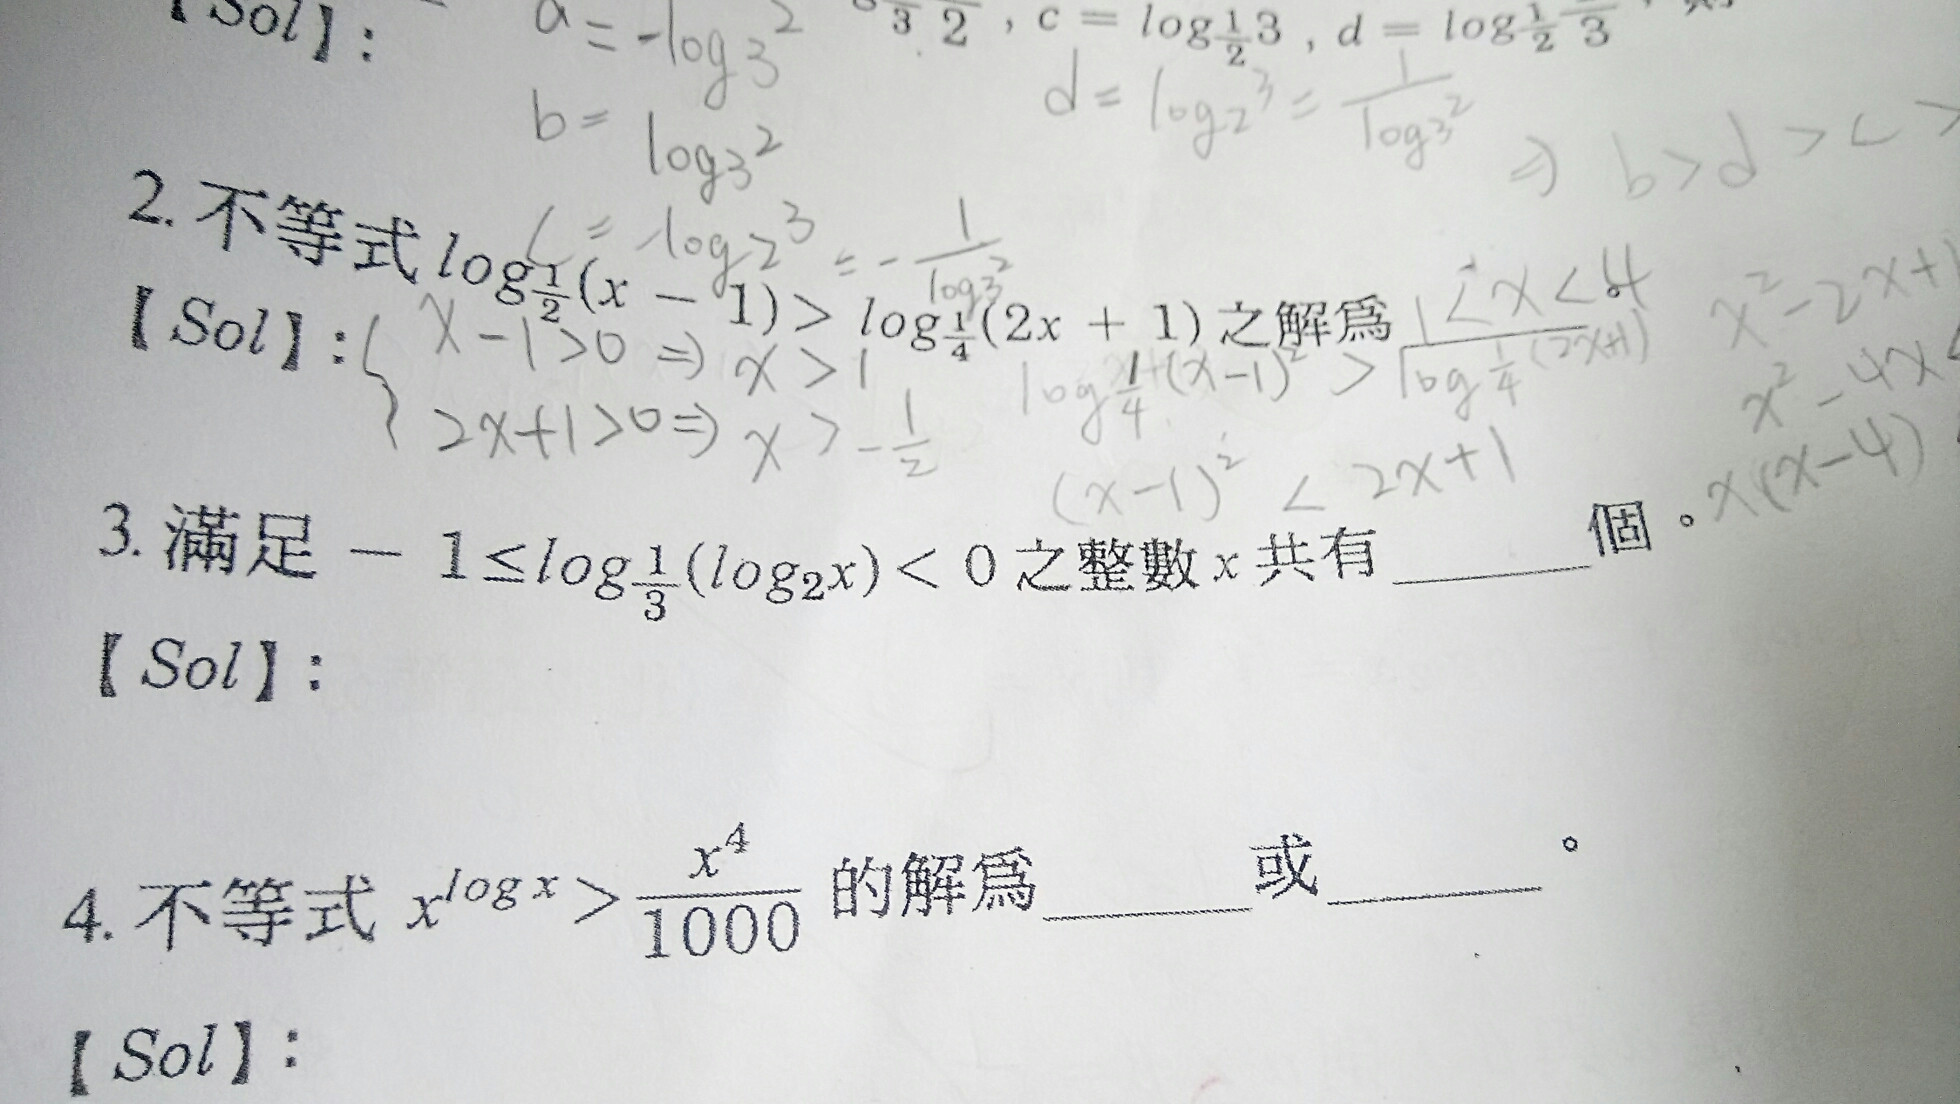 【Sol】: a = -log₃2
3 2 , c = log½3 , d = log½ 3
b = log₃2
d = log₂3 = 1/log₃2
⇒ b > d > c >
c = -log₂3 = -1/log₃2
2. 不等式 log½(x - 1) > log¼(2x + 1) 之解爲 1 < x < 4 。
【Sol】: { x-1>0 ⇒ x > 1
2x+1>0 ⇒ x > -1/2
log¼(x-1)² > log¼(2x+1)
(x-1)² < 2x+1
x²-2x+1
x²-4x<
x(x-4)
3. 滿足 - 1 ≤ log⅓(log₂x) < 0 之整數 x 共有______個。
【Sol】:
4. 不等式 x^{log x} > x⁴/1000 的解爲______或______。
【Sol】: